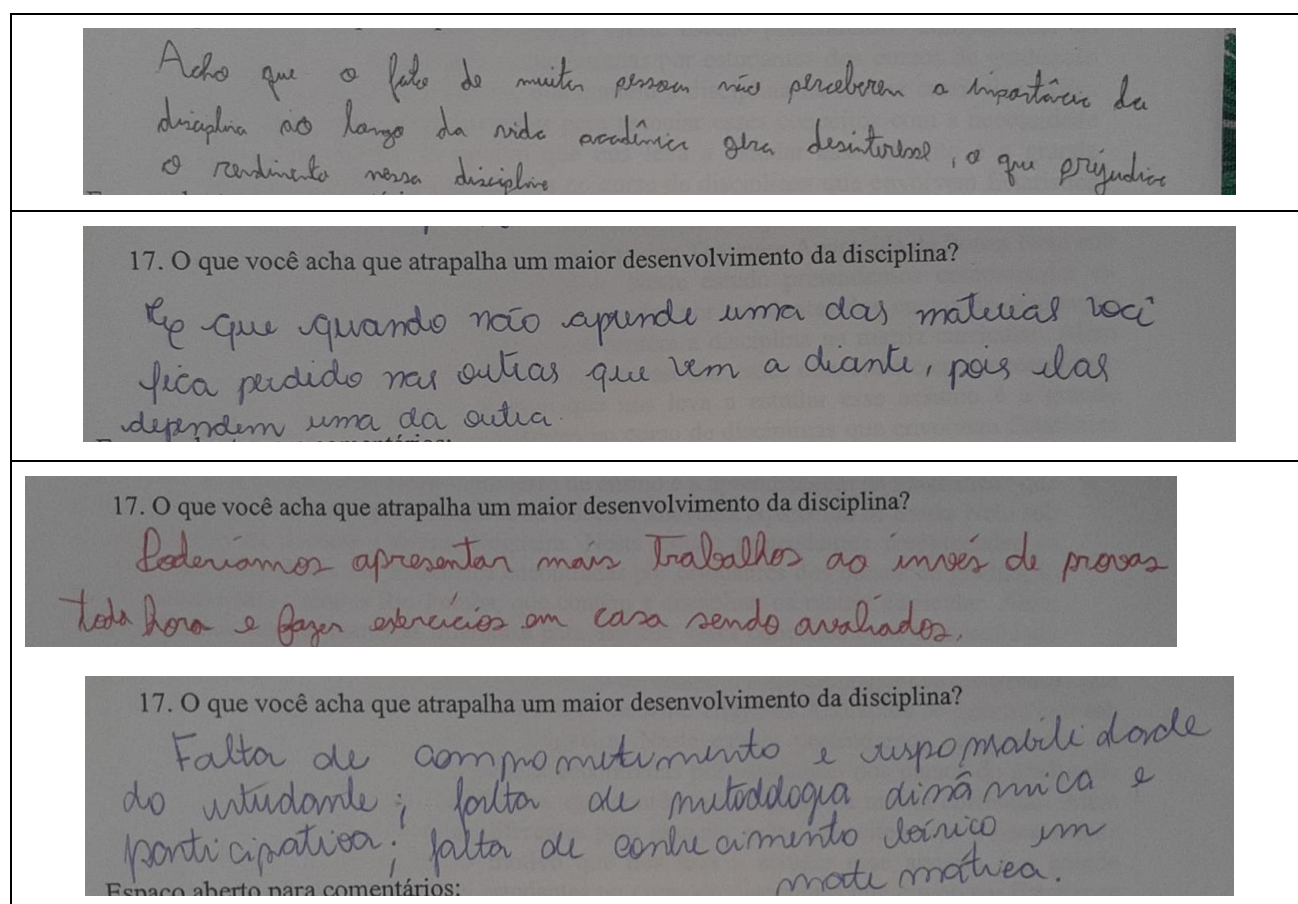 Acho que o fato de muitas pessoas não perceberem a importância da
disciplina ao longo da vida acadêmica gera desinteresse, o que prejudica
o rendimento nessa disciplina
17. O que você acha que atrapalha um maior desenvolvimento da disciplina?
que quando não aprende uma das materias você
fica perdido nas outras que vem a diante, pois elas
dependem uma da outra.
17. O que você acha que atrapalha um maior desenvolvimento da disciplina?
Poderiamos apresentar mais Trabalhos ao invés de provas
toda hora e fazer exercícios em casa sendo avaliados.
17. O que você acha que atrapalha um maior desenvolvimento da disciplina?
Falta de comprometimento e responsabilidade
do estudante; falta de metodologia dinâmica e
participativa; falta de conhecimento teórico em
matemática.
Espaço aberto para comentários: